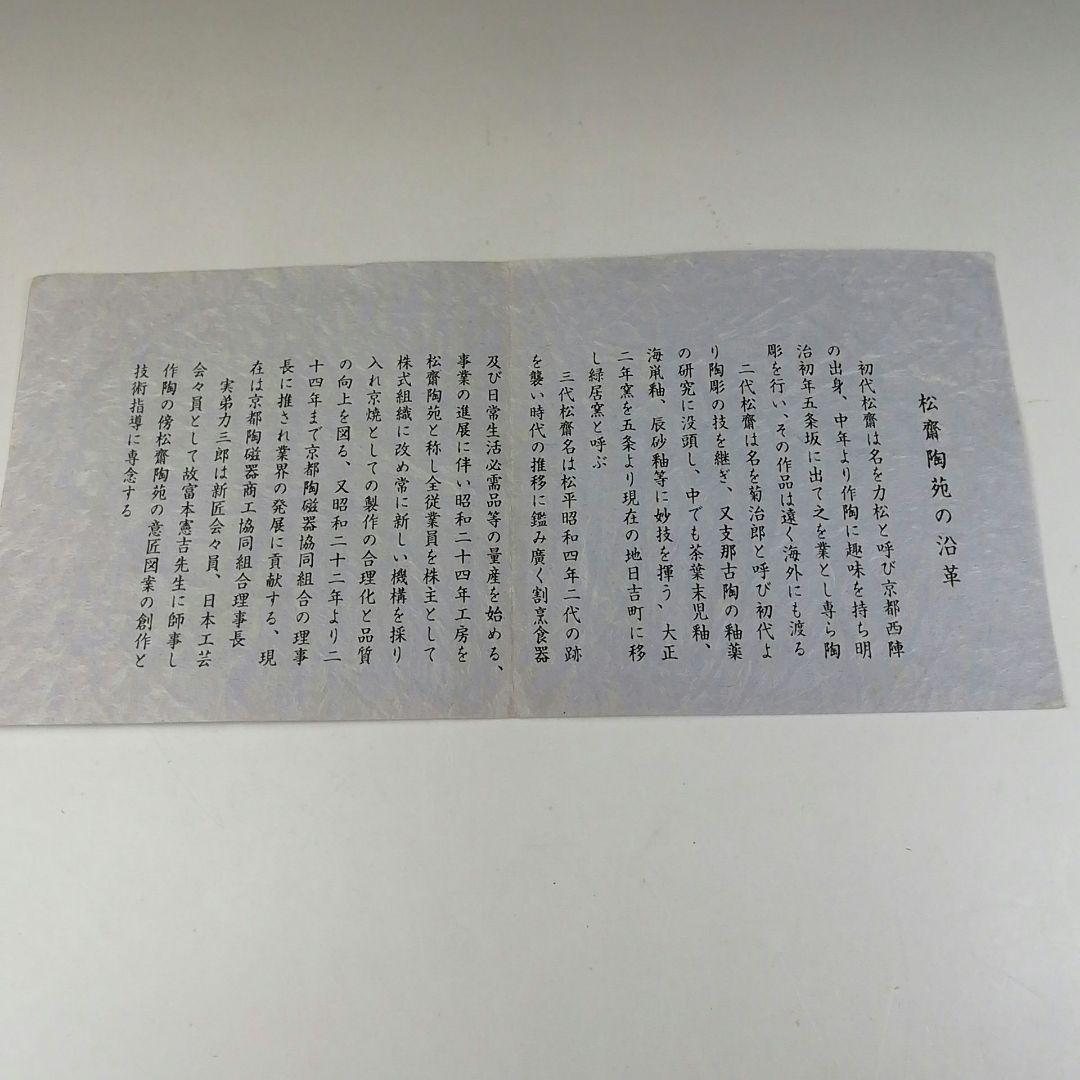 松齋陶苑の沿革
初代松齋は名を力松と呼び京都西陣
の出身、中年より作陶に趣味を持ち明
治初年五条坂に出て之を業とし専ら陶
彫を行い、その作品は遠く海外にも渡る
二代松齋は名を菊治郎と呼び初代よ
り陶彫の技を継ぎ、又支那古陶の釉薬
の研究に没頭し、中でも茶葉末児釉、
海鼠釉、辰砂釉等に妙技を揮う、大正
二年窯を五条より現在の地日吉町に移
し緑居窯と呼ぶ
三代松齋名は松平昭和四年二代の跡
を襲い時代の推移に鑑み廣く割烹食器
及び日常生活必需品等の量産を始める、
事業の進展に伴い昭和二十四年工房を
松齋陶苑と称し全従業員を株主として
株式組織に改め常に新しい機構を採り
入れ京焼としての製作の合理化と品質
の向上を図る、又昭和二十二年より二
十四年まで京都陶磁器協同組合の理事
長に推され業界の発展に貢献する、現
在は京都陶磁器商工協同組合理事長
実弟力三郎は新匠会々員、日本工芸
会々員として故富本憲吉先生に師事し
作陶の傍松齋陶苑の意匠図案の創作と
技術指導に専念する